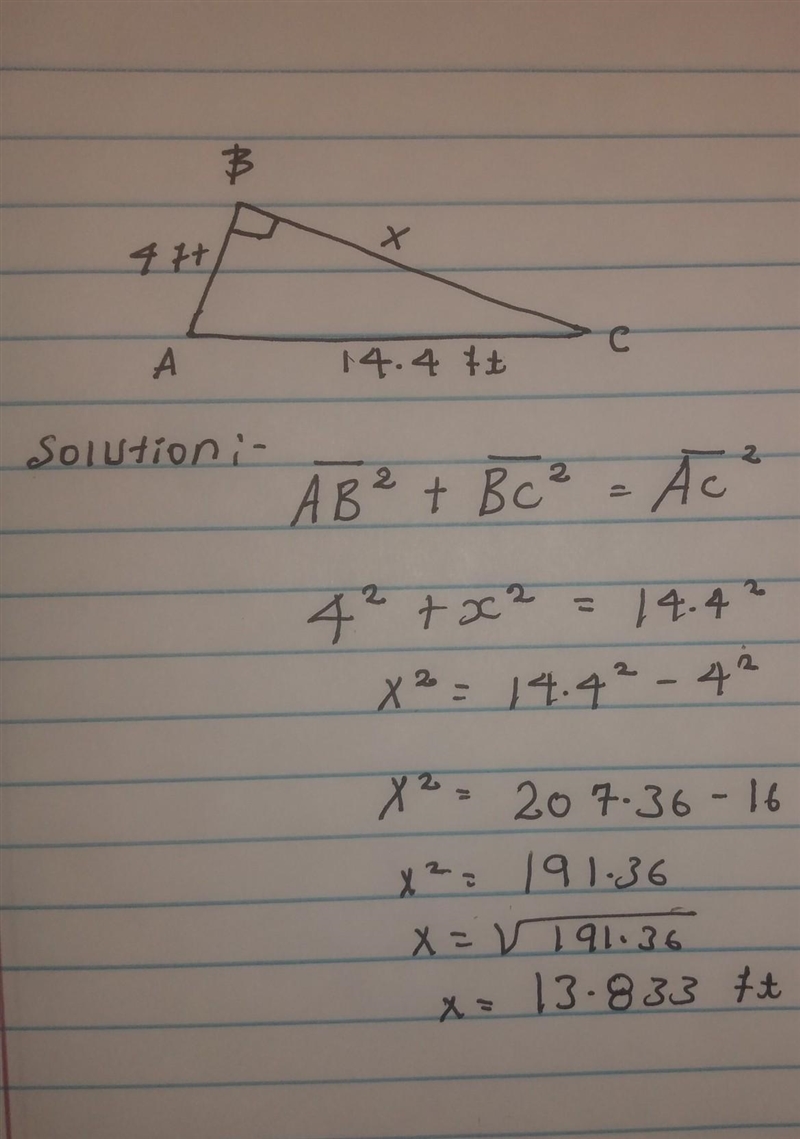 B
4 ft
x
A
14.4 ft
C
Solution:-
AB² + BC² = AC²
4² + x² = 14.4²
x² = 14.4² - 4²
x² = 207.36 - 16
x² = 191.36
x = √191.36
x = 13.833 ft